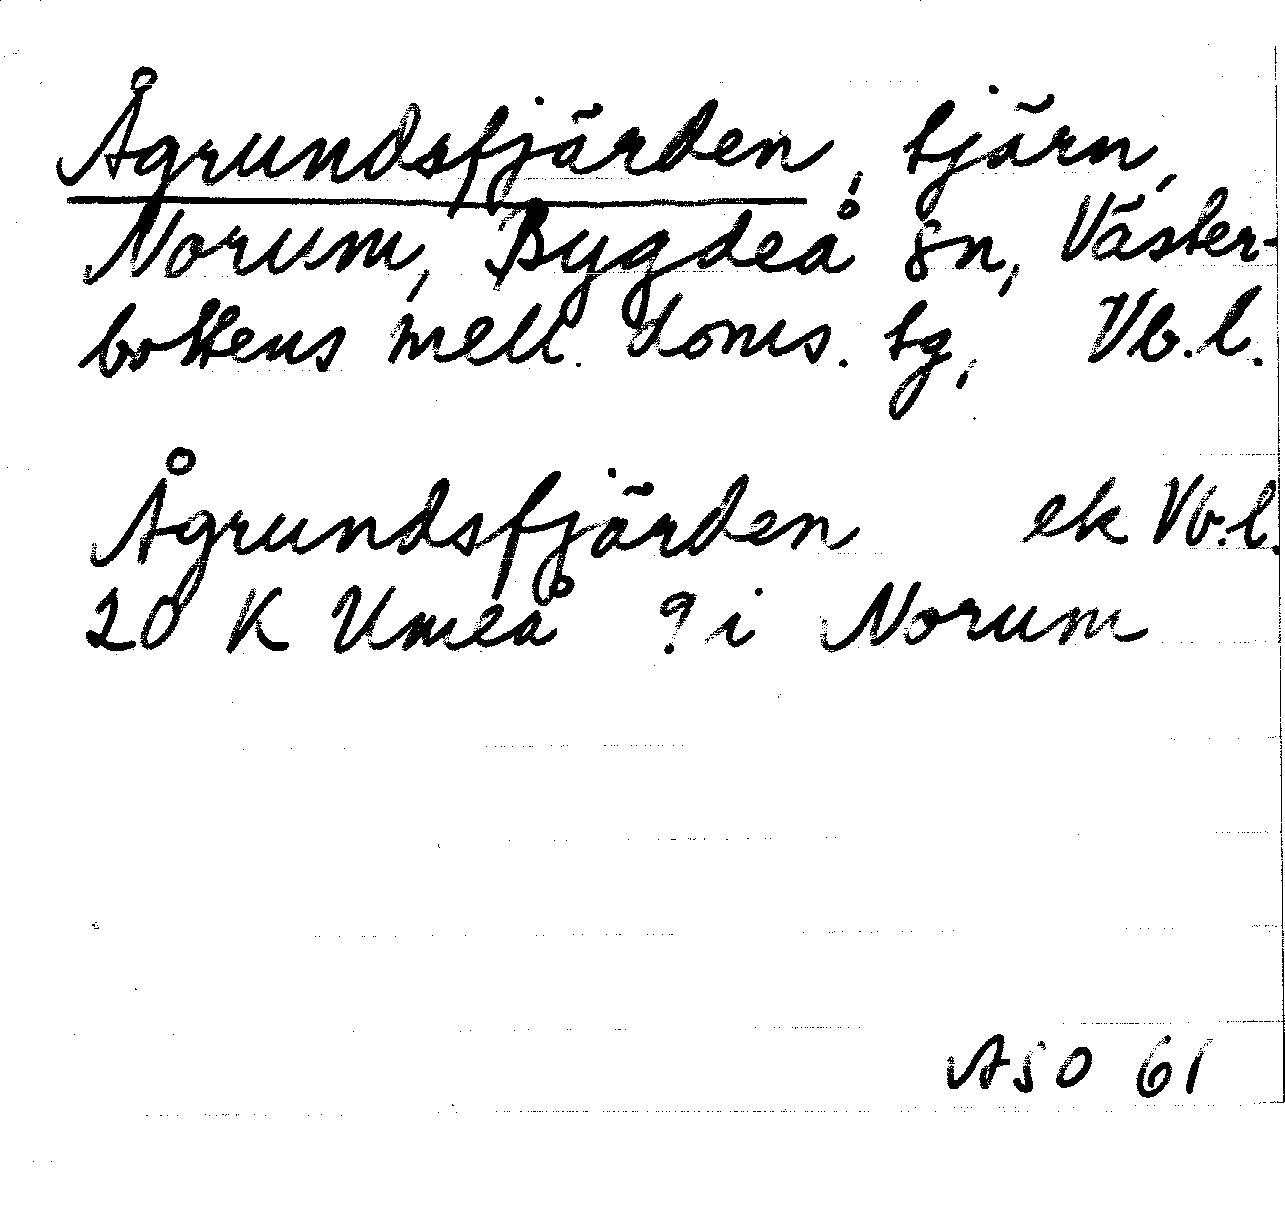 Ågrundsfjärden, tjärn,
Norum, Bygdeå sn, Väster-
bottens mell. doms. tg, Vb.l.
Ågrundsfjärden ek Vb.l.
20 K Umeå ? i Norum
ASO 61